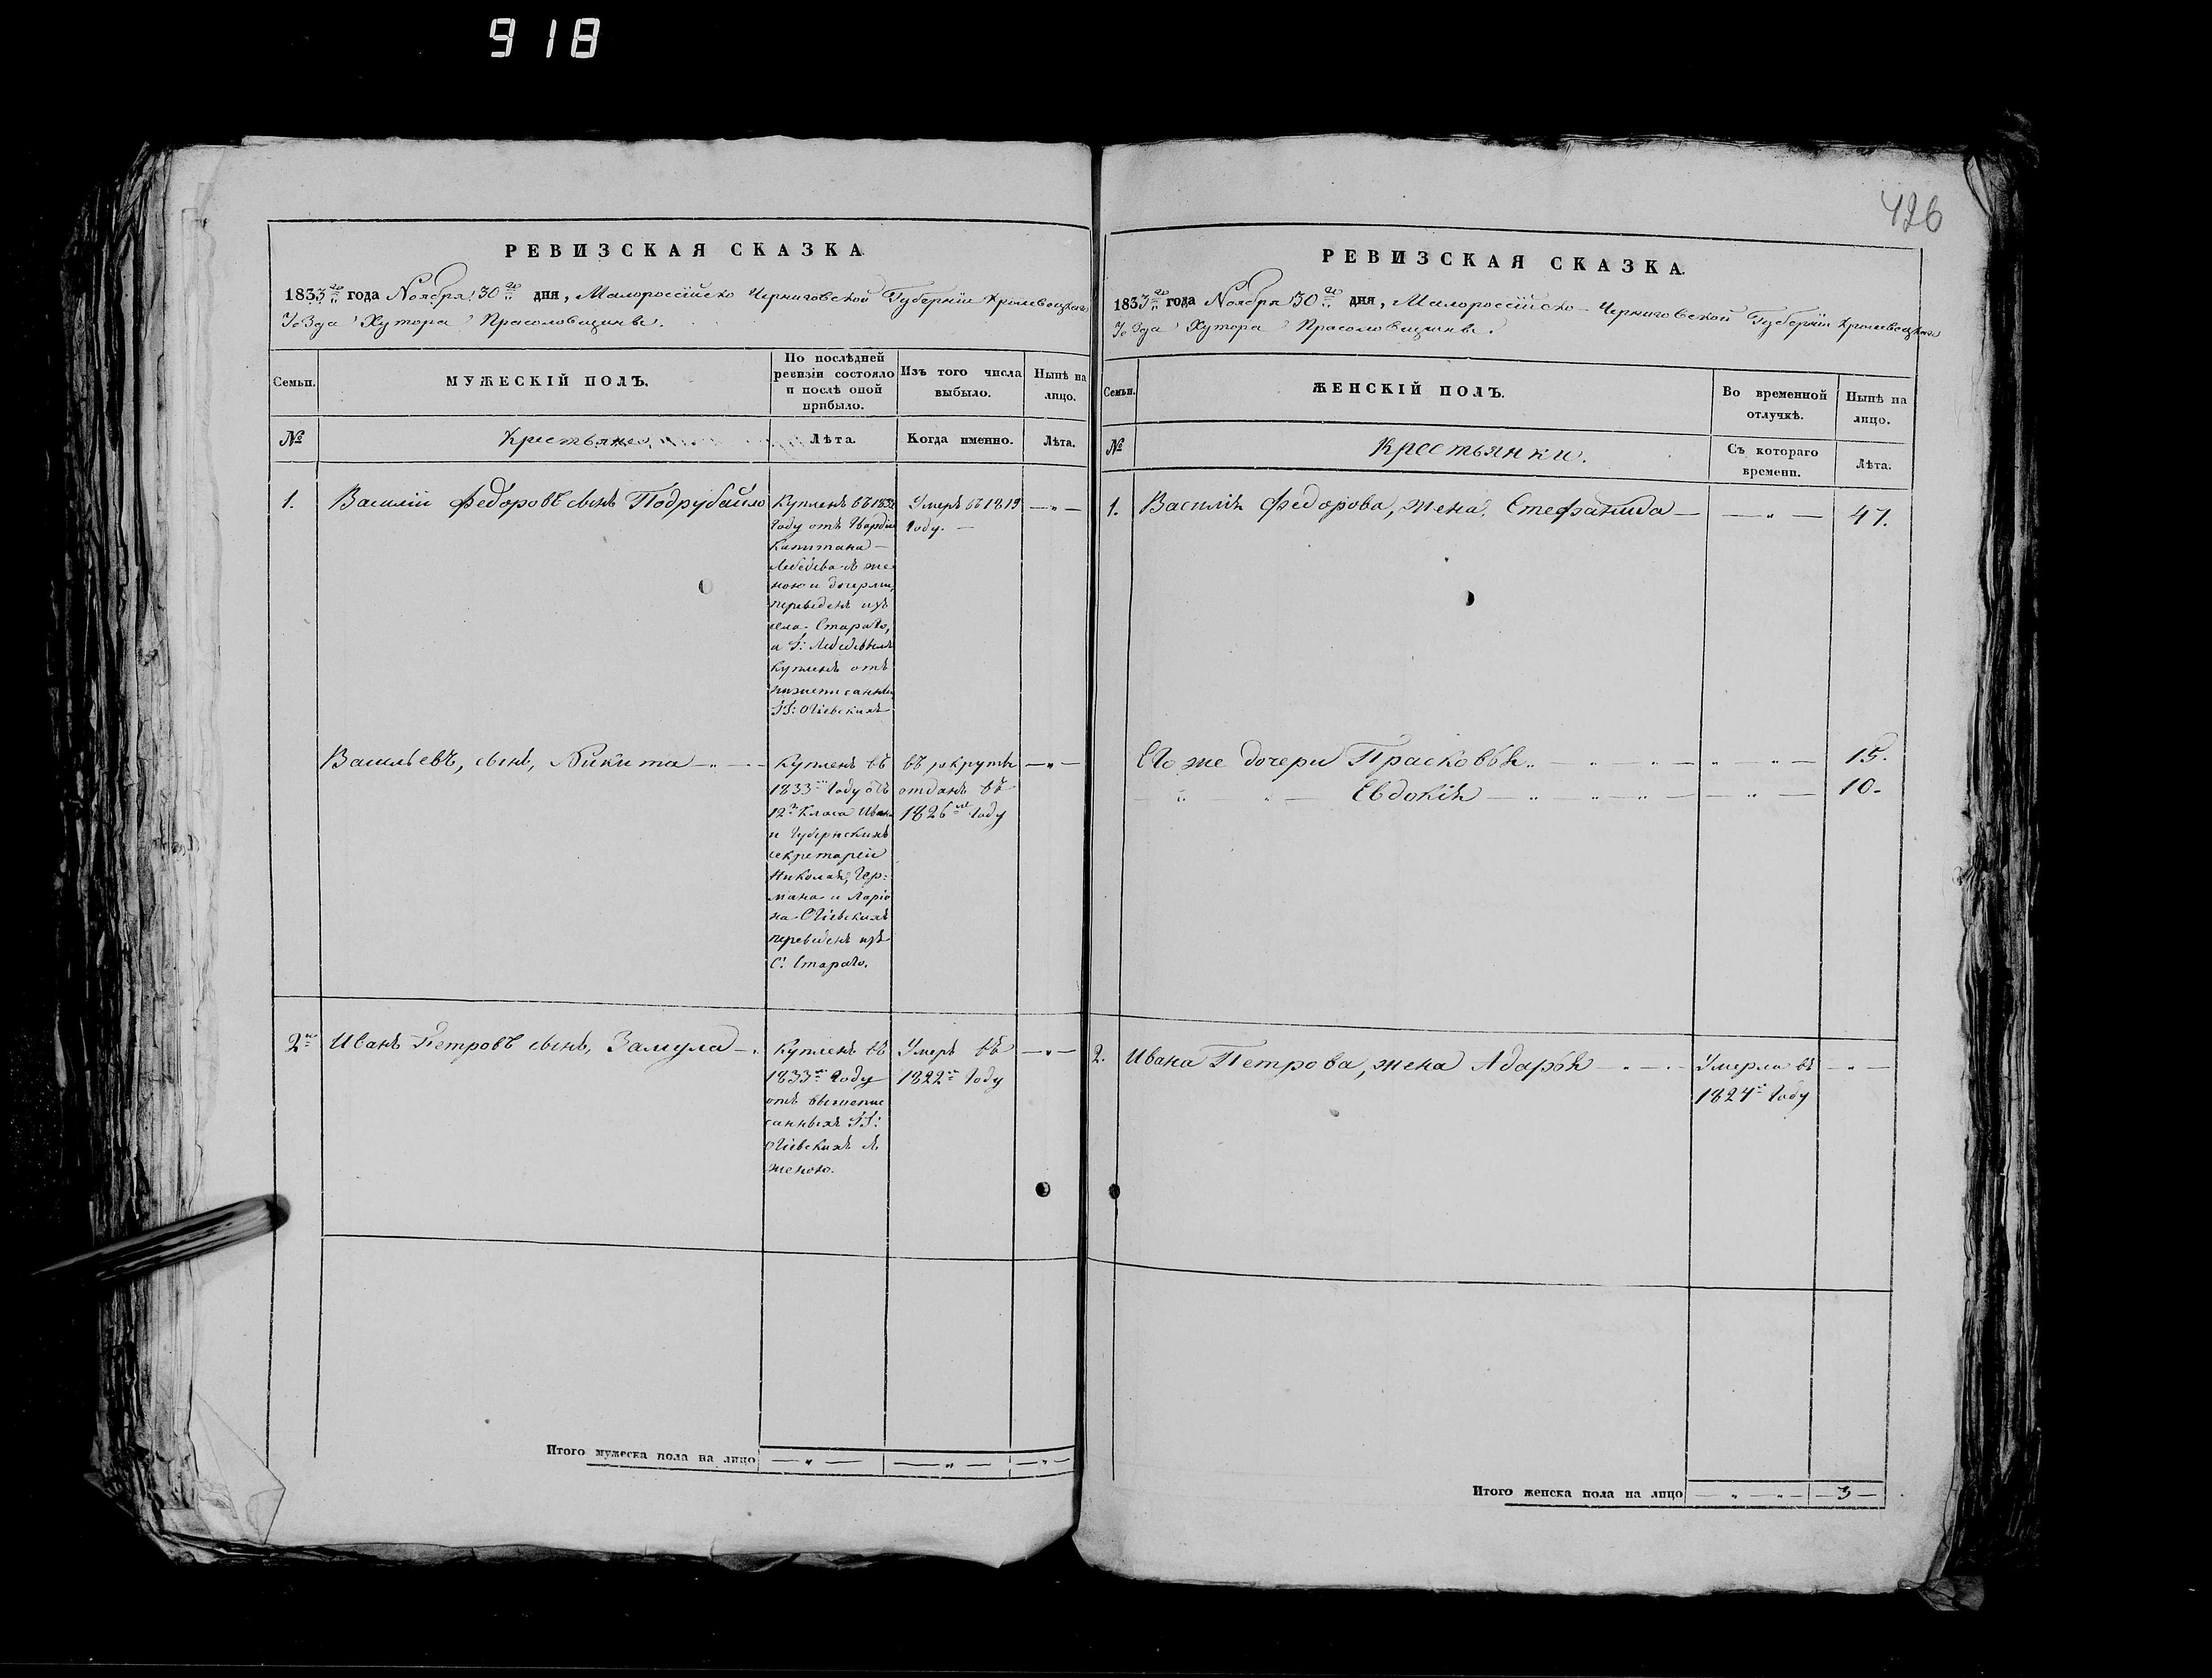 918
426
РЕВИЗСКАЯ СКАЗКА.
1833го года Ноября 30го дня, Малороссійско Черниговской Губерніи Кролевецкаго
Уѣзда Хутора Прасоловщины.
Семьи.
МУЖЕСКІЙ ПОЛЪ.
По послѣдней
ревизіи состояло
и послѣ оной
прибыло.
Изъ того числа
выбыло.
Нынѣ на
лицо.
№
Крестьяне
Лѣта.
Когда именно.
Лѣта.
1.
Василій Федоровъ сынъ Подрубайло
Купленъ въ 1832
Году отъ Гвардіи
Капитана —
Лебедева съ же
ною и дочерми,
переведенъ изъ
села Стараго,
а Г: Лебедевымъ
купленъ отъ
нижеписанных
ГГ: Огіевскихъ
Умеръ въ 1819
Году. —
— „ —
Васильевъ, сынъ, Никита
Купленъ въ
1833м Году отъ
12го Класа Ивана
и Губернскихъ
секретарей
Николая, Гер:
мана и Ларіо
на Огіевскихъ
переведенъ изъ
С: Стараго.
въ рекруты
отданъ въ
1826м Году
— „ —
2е
Иванъ Петровъ сынъ, Замула
Купленъ въ
1833м Году
отъ вышепи
санныхъ ГГ:
Огіевскихъ съ
женою.
Умеръ въ
1822м Году
— „ —
Итого мужеска пола на лицо — „ — — „ — — „ —
РЕВИЗСКАЯ СКАЗКА.
1833го года Ноября 30го дня, Малороссійско — Черниговской Губерніи Кролевецкаго
Уѣзда Хутора Прасоловщины.
Семьи.
ЖЕНСКІЙ ПОЛЪ.
Во временной
отлучкѣ.
Нынѣ на
лицо.
№
Крестьянки.
Съ котораго
времени.
Лѣта.
1. Василія Федорова, жена, Стефанида — — „ — 47.
Его же дочери Прасковья 15.
Евдокія 10.
2. Ивана Петрова, жена Адарья
Умерла въ
1824м Году
— „ —
Итого женска пола на лицо — „ „ — — 3 —